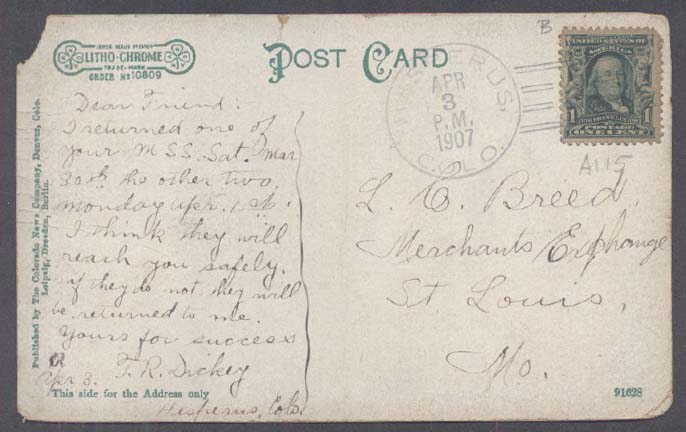 LITHO-CHROME
TRADE-MARK
ORDER No 10809
POST CARD
B
HESPERUS,
APR
3
P.M.
1907
COLO.
UNITED STATES OF
AMERICA
1 1
FRANKLIN
POSTAGE
ONE CENT
A115
Dear Friend:
I returned one of
your MSS. Sat. Mar
30th the other two,
Monday Apr. 1st.
I think they will
reach you safely.
if they do not they will
be returned to me.
Yours for success
T. R. Dickey
Apr 3.
Hesperus, Colo.
L. C. Breed
Merchants Exchange
St Louis,
Mo.
Published by The Colorado News Company, Denver, Colo.
Leipzig, Dresden, Berlin.
This side for the Address only
91628